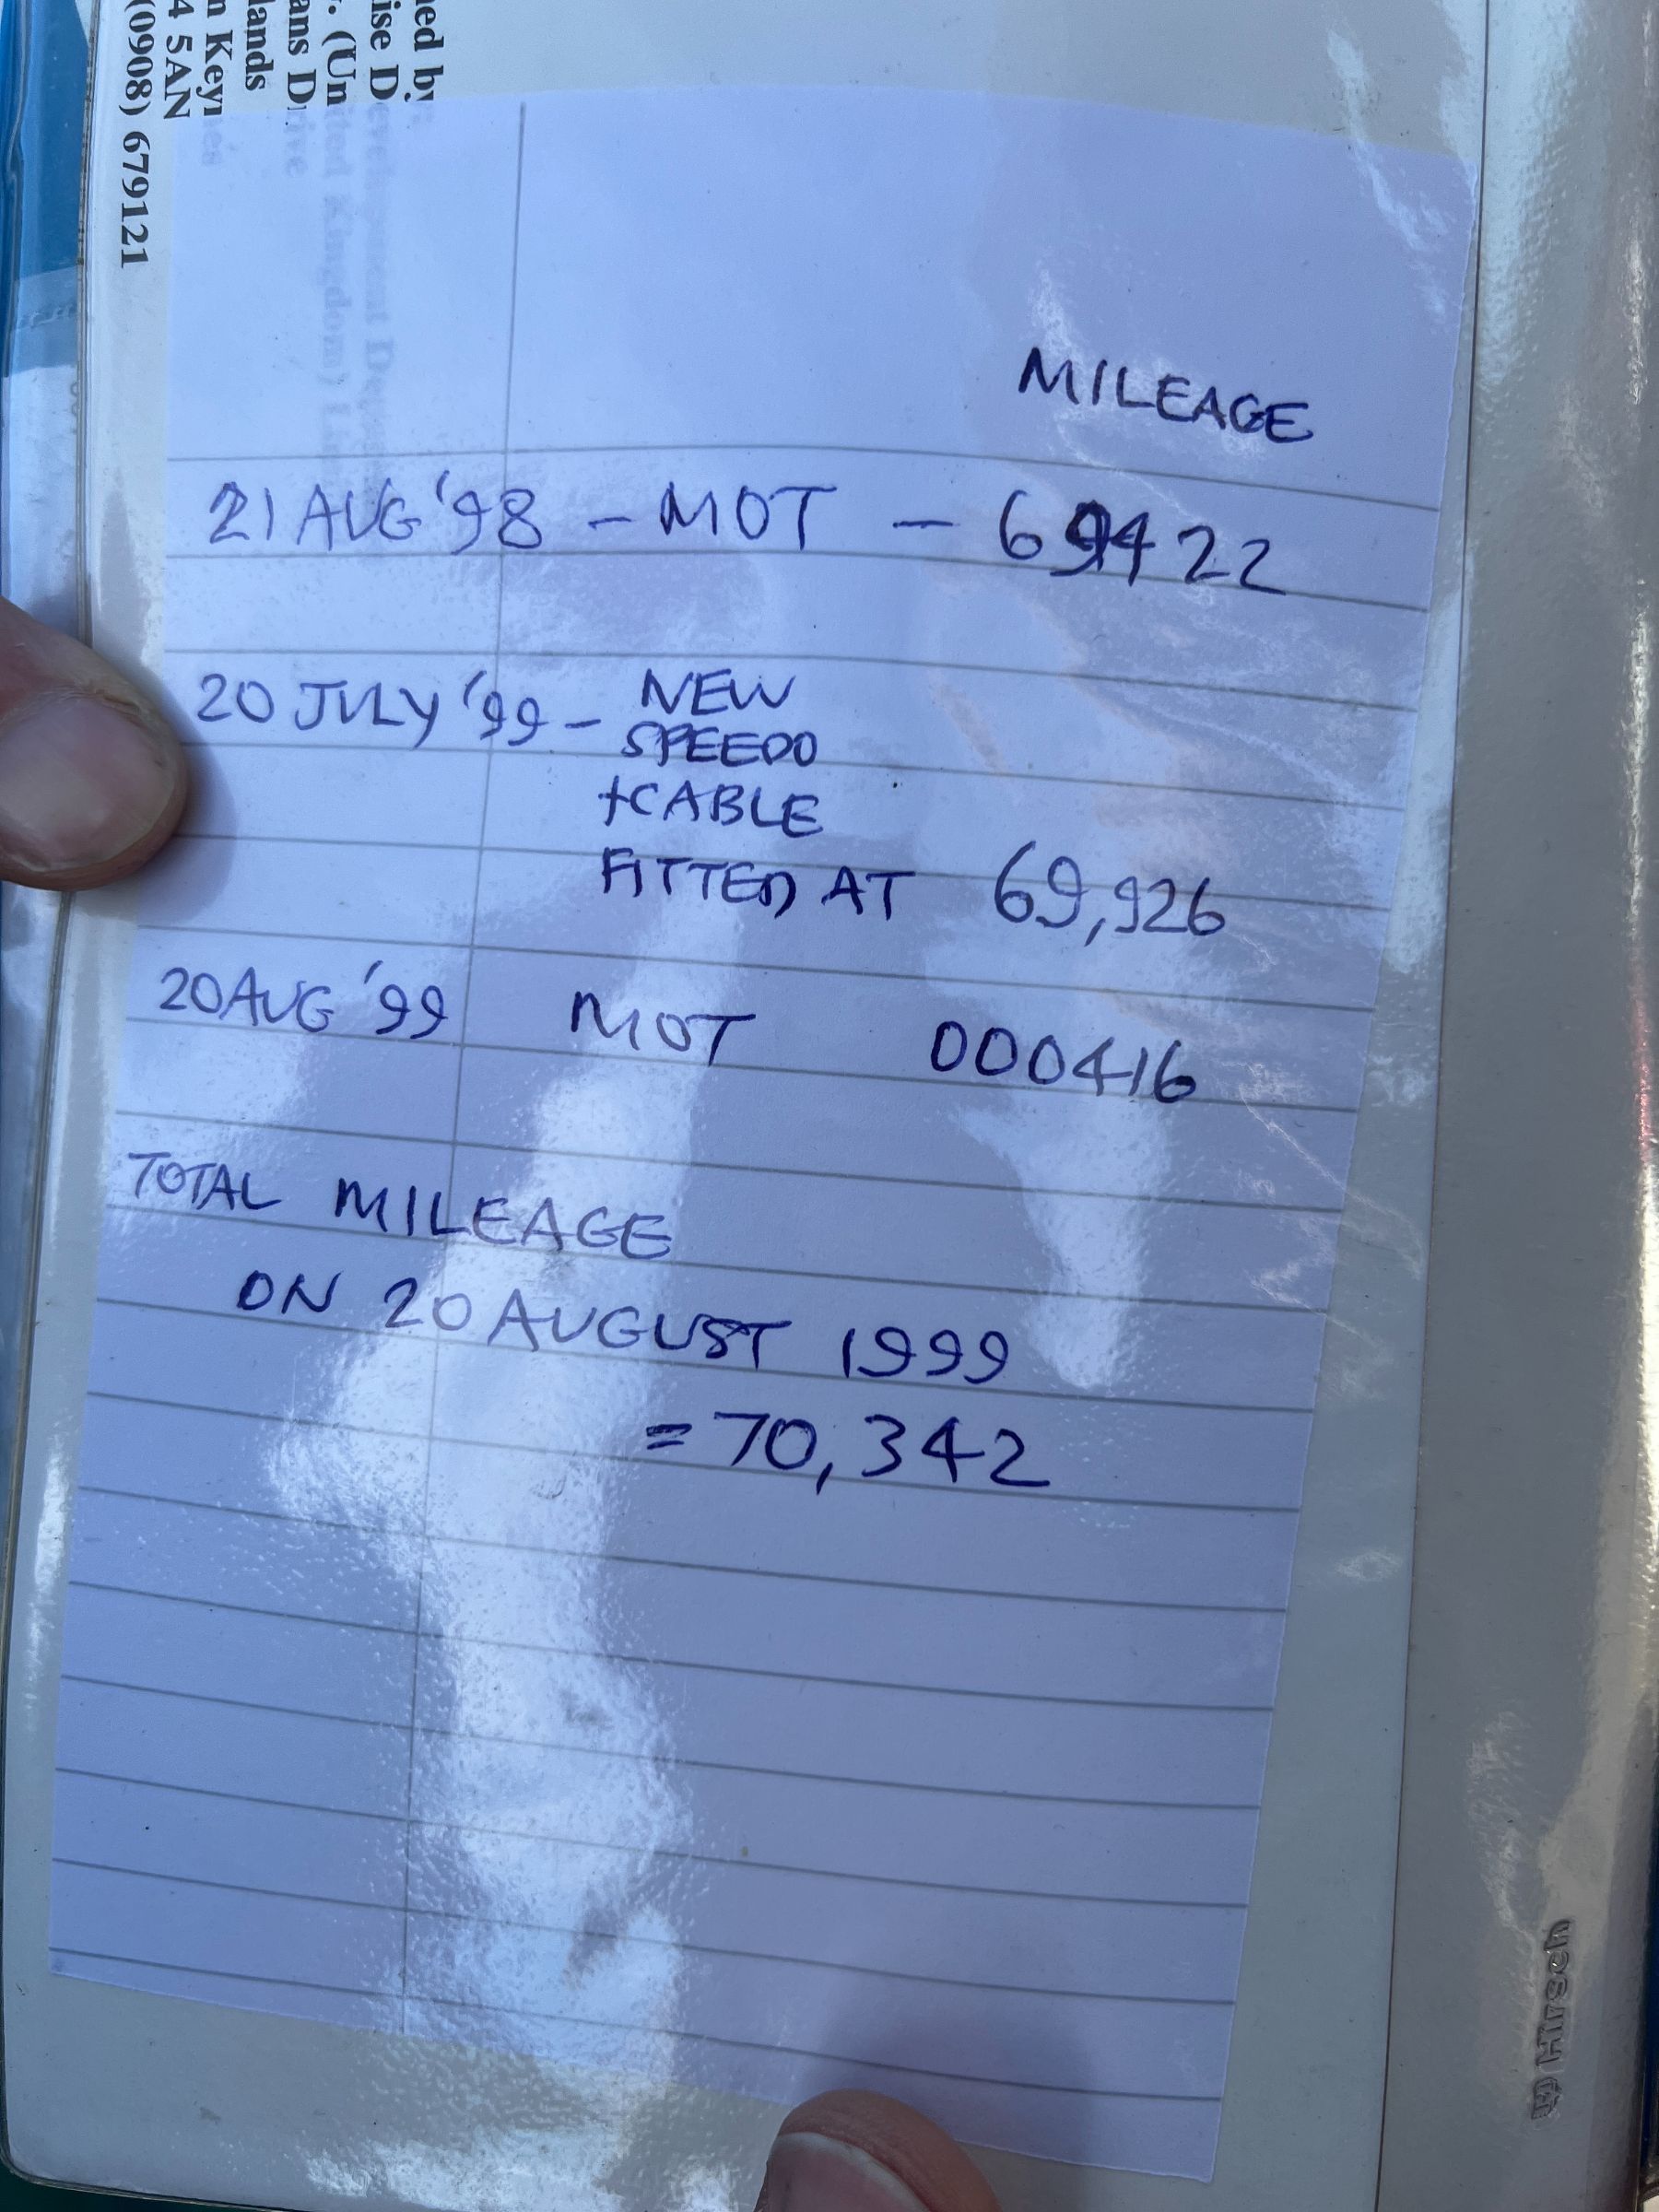 ned by:
ise Development Depa
. (United Kingdom) Li
ans Drive
lands
n Keynes
4 5AN
(0908) 679121
MILEAGE
21 AUG '98 - MOT - 69422
20 JULY '99 - NEW
SPEEDO
+CABLE
FITTED AT 69,926
20 AUG '99 MOT 000416
TOTAL MILEAGE
ON 20 AUGUST 1999
= 70,342
Hirsch